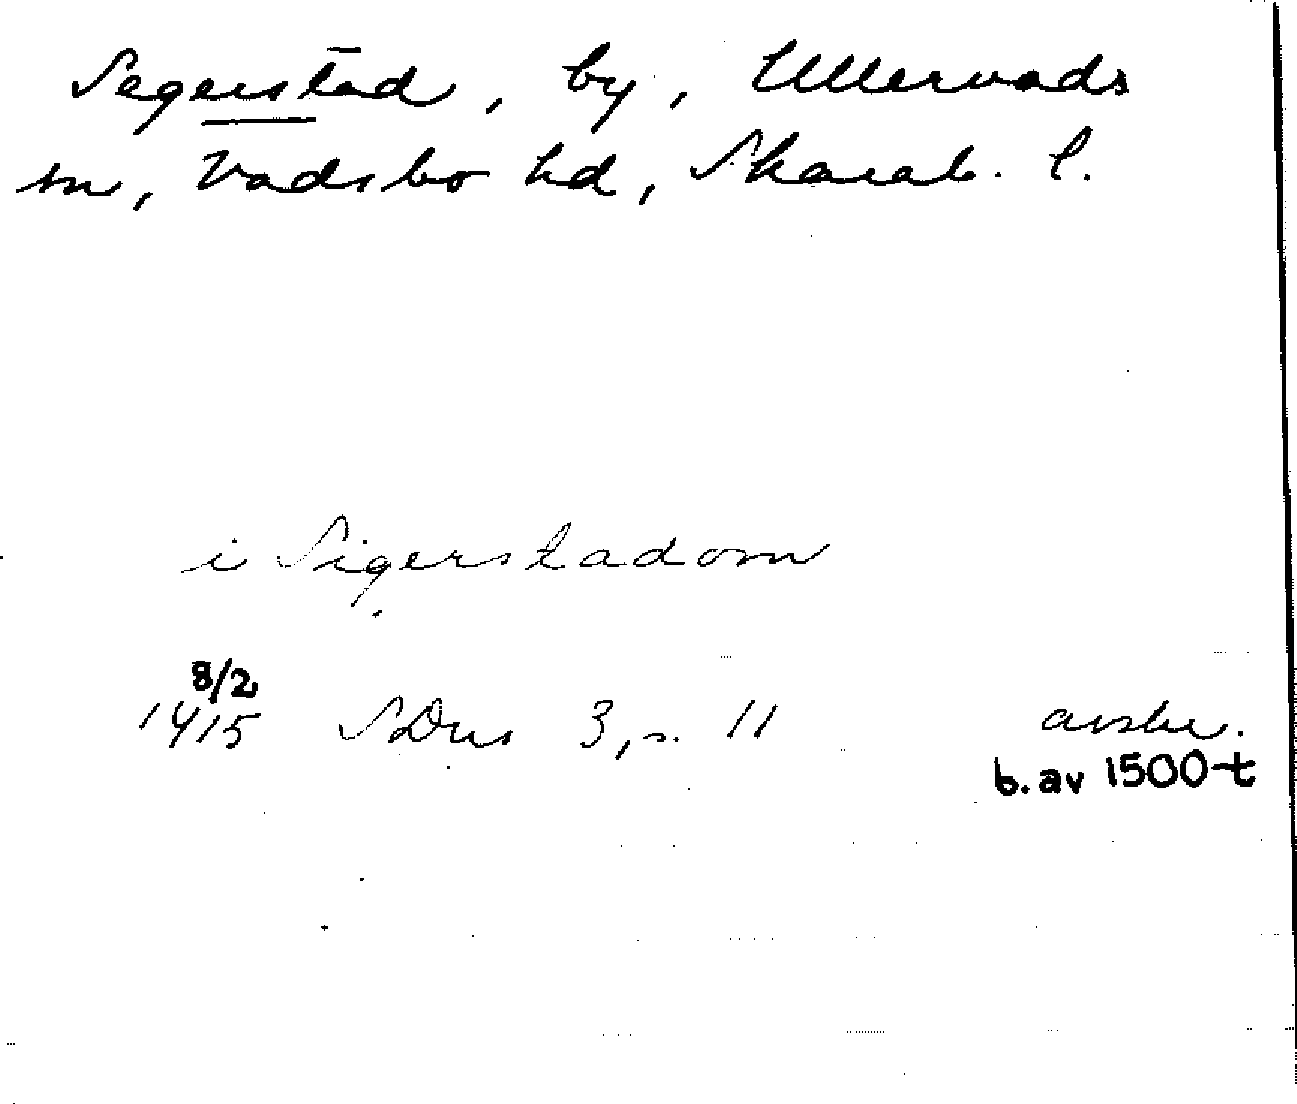 Segerstad, by, Ullervads
sn, Vadsbo hd, Skarab. l.
i Sigerstadom
8/2
1415 SDns 3, s. 11 avskr.
b. av 1500-t